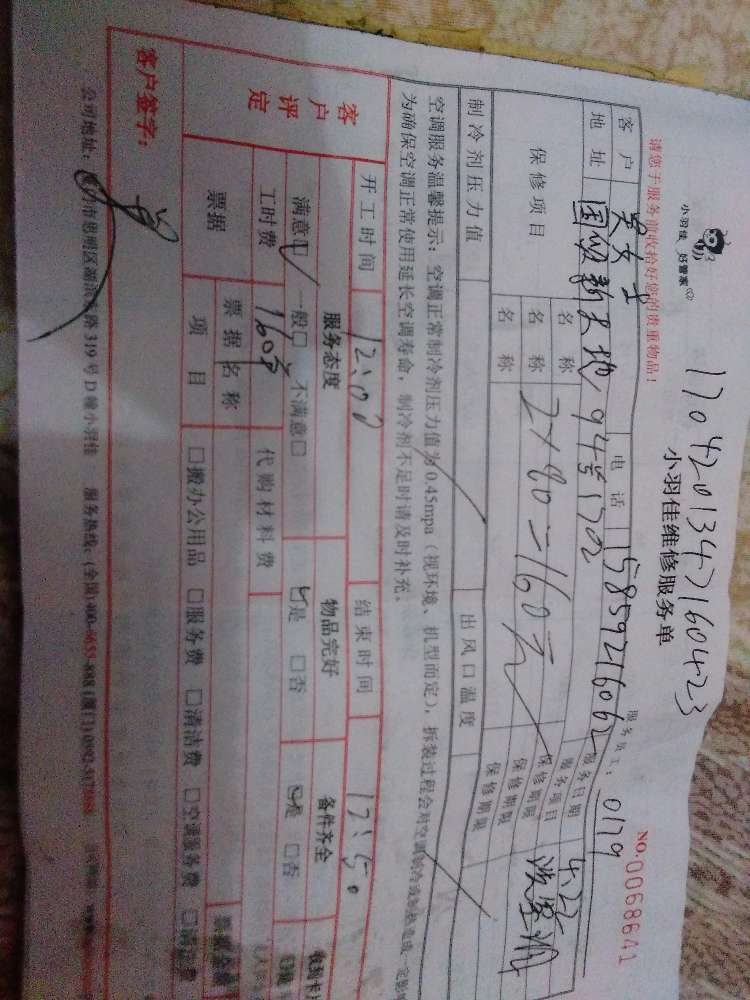 1704201347160423
小羽佳 好管家
小羽佳维修服务单
NO.0068641
请您于服务前收拾好您的贵重物品!
服务员工: 0129
客户 吴女士 电话 15859216062 服务日期 4.22
地址 国贸新天地94号1702 服务项目 洗空调
保修项目 名称 保修期限
名称 2×80=160元 保修期限
名称 保修期限
制冷剂压力值 出风口温度
空调服务温馨提示: 空调正常制冷剂压力值为0.45mpa (视环境、机型而定), 拆装过程会对空调制冷或制热造成一定影
为确保空调正常使用延长空调寿命, 制冷剂不足时请及时补充。
开工时间 12:00 结束时间 12:50
客户评定 服务态度 物品完好 备件齐全
满意□ 一般□ 不满意□ □是 □否 □是 □否
工时费 160元 代购材料费
票据 票据名称
项目 □搬办公用品 □服务费 □清洁费 □空调服务费
客户签字:
公司地址: 厦门市思明区湖滨 路319号D幢小羽佳 服务热线: (全国)400-6655-888 (厦门)0592-5178888